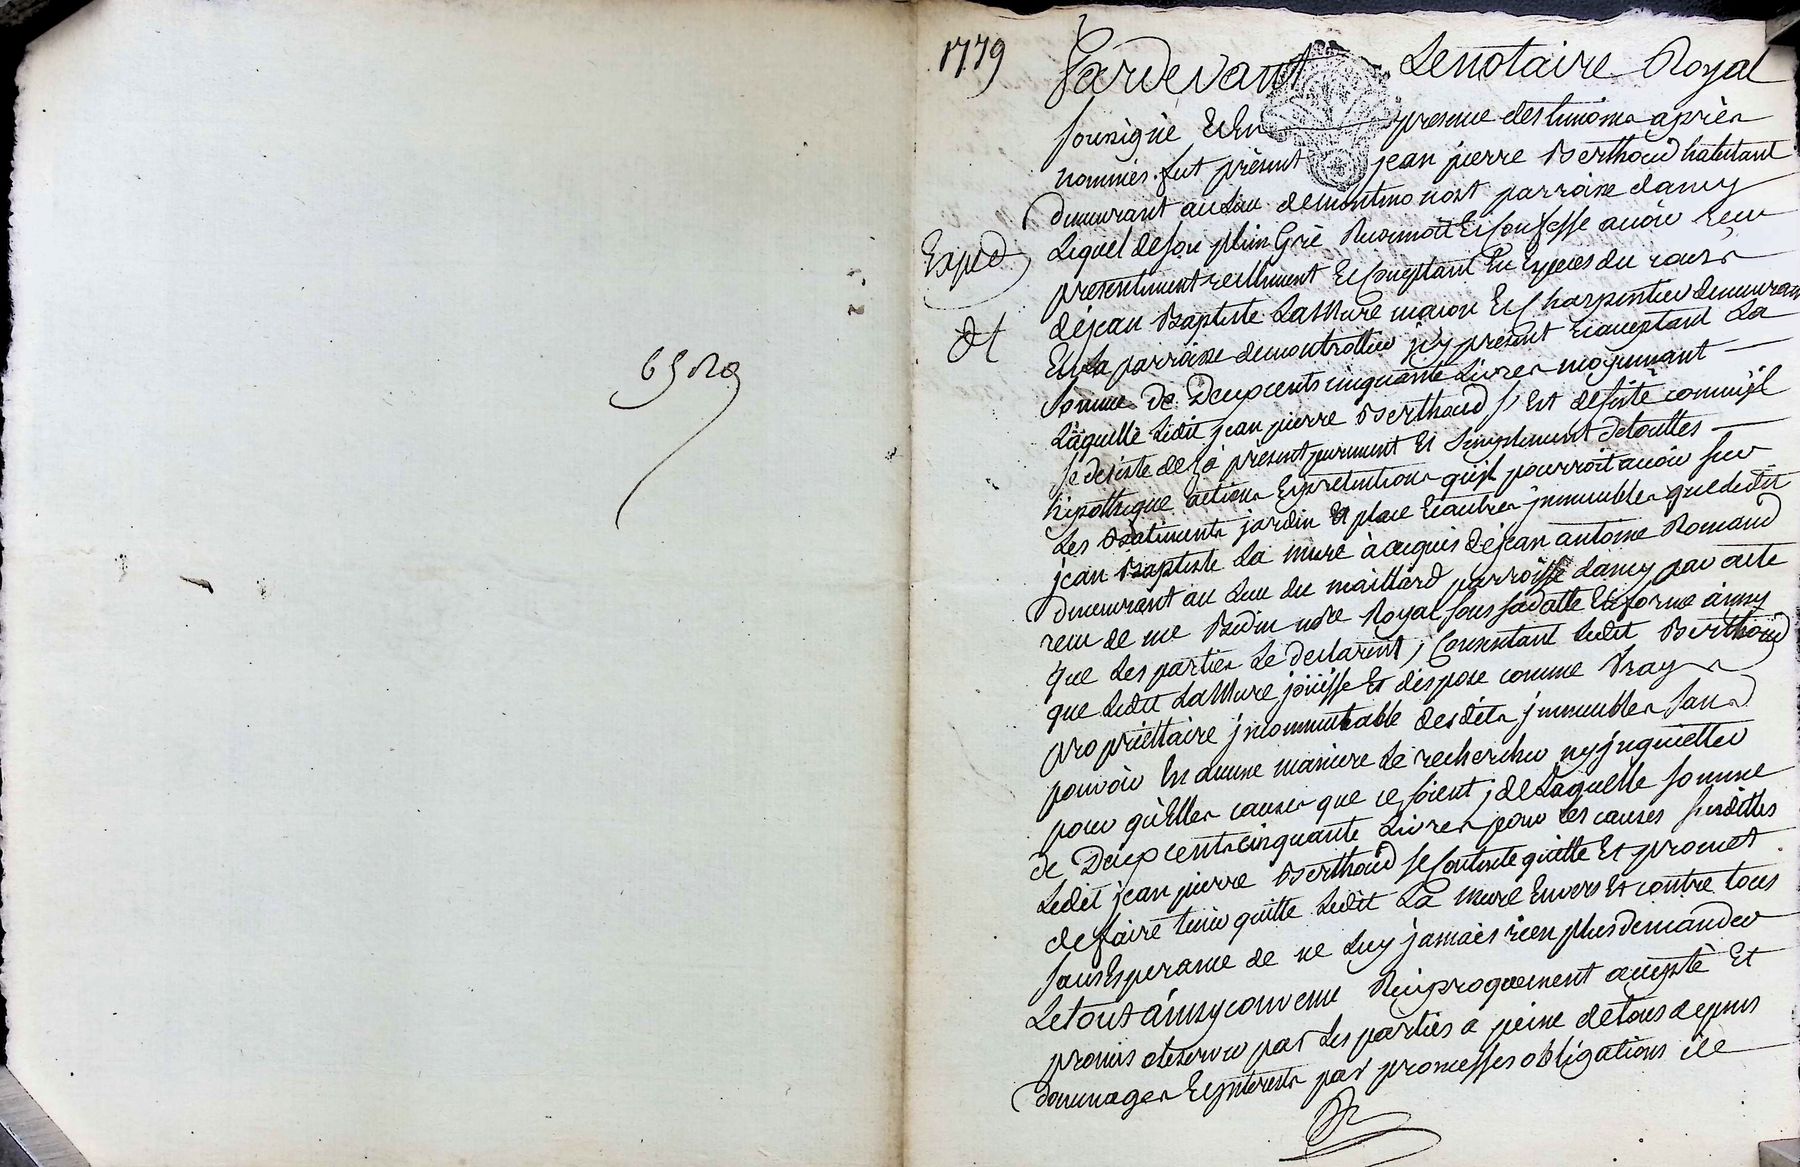 1779
Pardevant Le notaire Royal
soussigné Et En presence des temoins après
nommés fut présent jean pierre Berthoud habitant
demeurant au Lieu de montmonost parroisse dancy
Lequel de son plein Gré Reconnoit Et Confesse avoir Receu
Exped
presentement reellement Et Comptant En Especes du cours
de jean Baptiste LaMure macon Et Charpentier demeurant
dt
En La parroisse de montrottier jcy present Et acceptant La
somme de Deux cents cinquante Livres moyennant
Laquelle Ledit jean pierre Berthoud s'est désisté comme jl
se desiste de Ja présent purement Et simplement de touttes
hipothèque actions Et pretentions qu'jl pourroit avoir sur
Les Batiments jardin Et place Et autres jmmeubles que ledit
jean Baptiste La mure à acquis de jean antoine Romand
demeurant au Lieu du maillard parroisse dancy par acte
receu de me Bedin nore Royal sous sa datte Et forme ainsy
que Les parties Le declarent, Consentant Ledit Berthoud
que Ledit LaMure joüisse Et dispose comme Vray
proprièttaire jncommutable desdits jmmeubles sans
pouvoir En aucune maniere Le rechercher ny jnquietter
pour qu'Elles causes que ce soient; de Laquelle somme
de Deux cents cinquante Livres pour Les causes susdittes
Ledit jean pierre Berthoud se Contente quitte Et promet
de faire tenir quitte Ledit La Mure Envers Et contre tous
sans Esperance de ne Luy jamais rien plus demander
Le tout ainsy convenu Reciproquement accepté Et
promis observer par Les parties a peine de tous depens
dommages Et jnterests par promesses obligations de